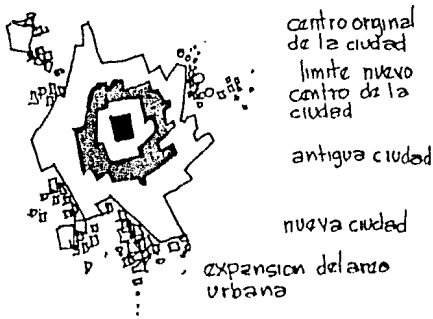 centro orginal
de la ciudad
limite nuevo
centro de la
ciudad
antigua ciudad
nueva ciudad
expansion del area
urbana